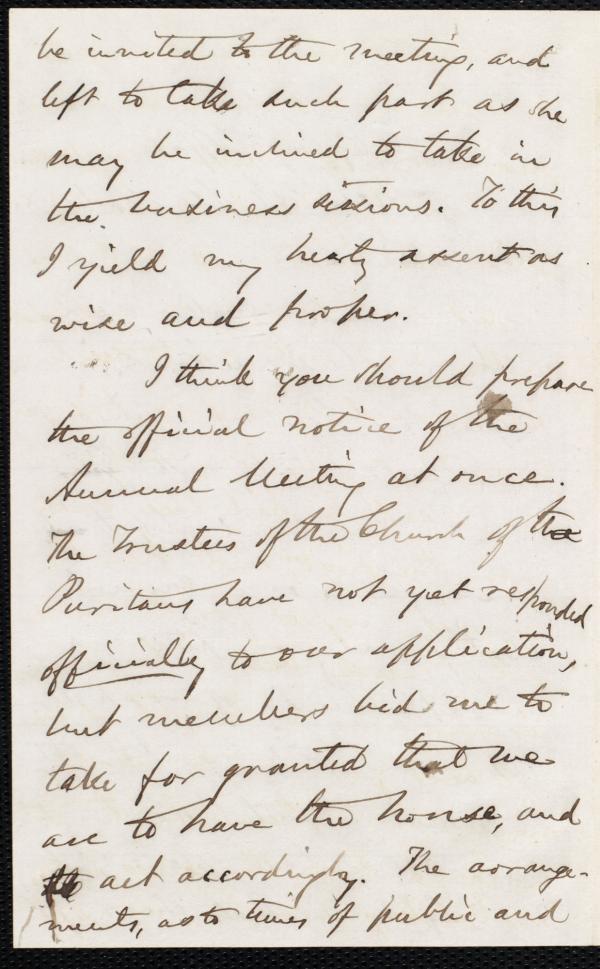 be invited to the meeting, and
left to take such part as she
may be inclined to take in
the business sessions. To this
I yield my hearty assent as
wise and proper.
I think you should prepare
the official notice of the
Annual Meeting at once.
The Trustees of the Church of the
Puritans have not yet responded
officially to our application,
but members bid me to
take for granted that we
are to have the house, and
to act accordingly. The arrange-
ments, as to times of public and